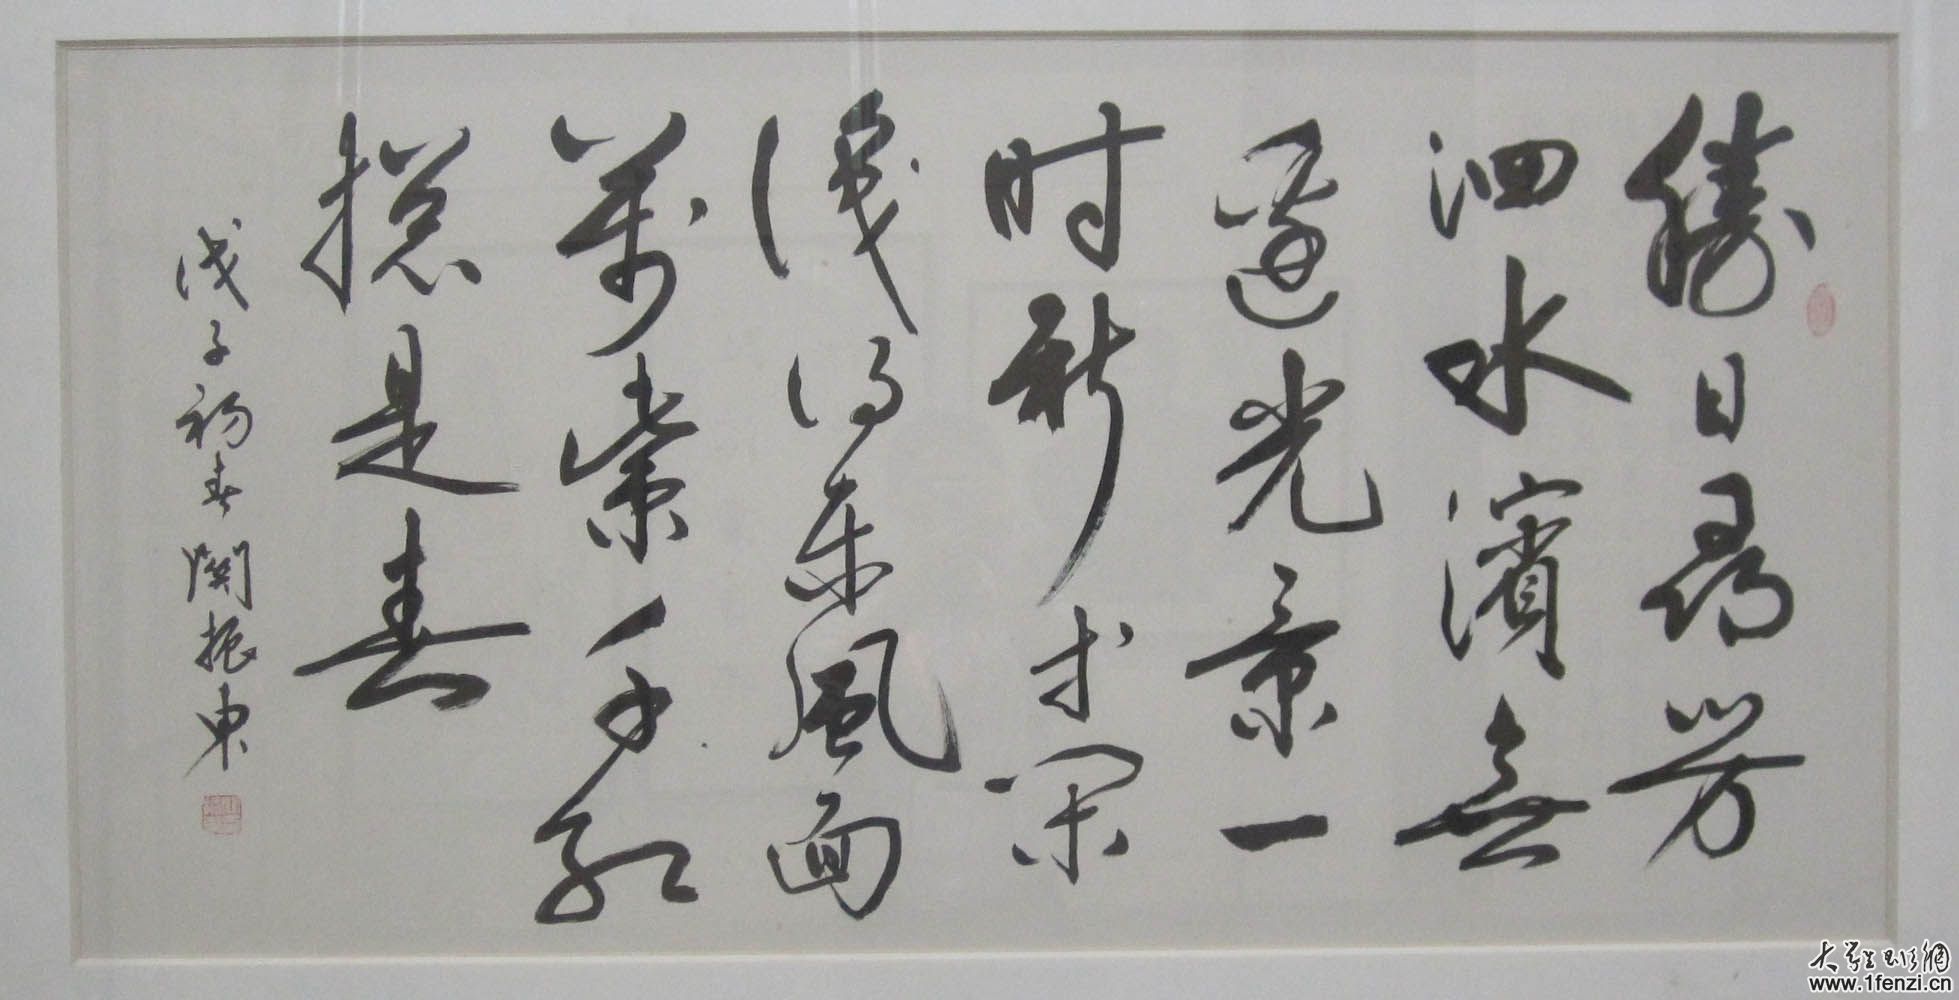 勝日尋芳
泗水濱無
邊光景一
时新等閑
識得東風面
萬紫千紅
摠是春
戊子初春 關振東
大學生书法網
www.1fenzi.cn